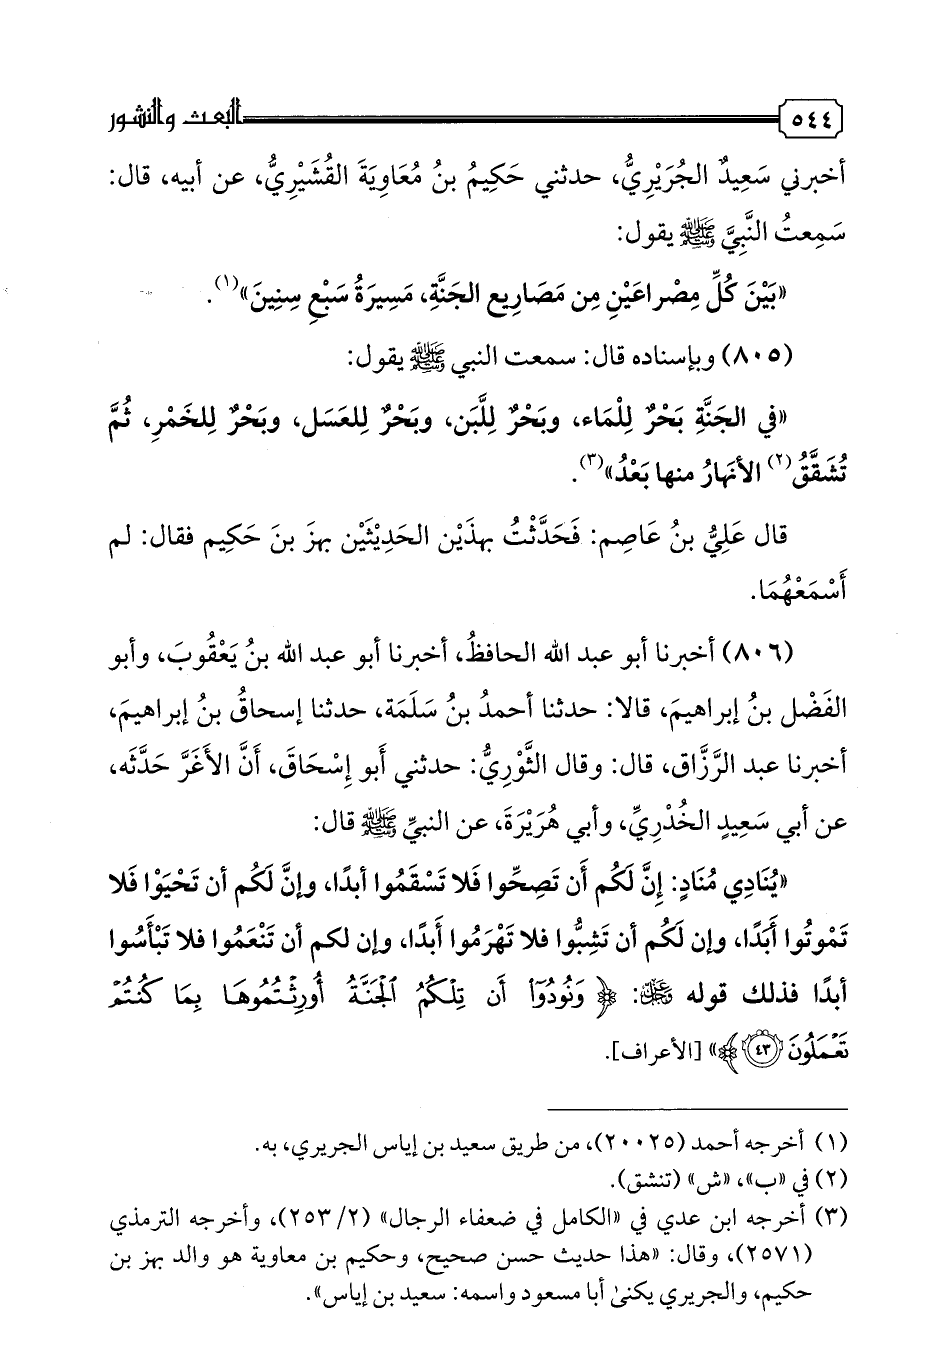 ٥٤٤ البعث والنشور
أخبرني سَعِيدٌ الجُرَيْرِيُّ، حدثني حَكِيمُ بنُ مُعَاوِيَةَ القُشَيْرِيُّ، عن أبيه، قال:
سَمِعتُ النَّبِيَّ ﷺ يقول:
«بَيْنَ كُلِّ مِصْراعَيْنِ مِن مَصَارِيعِ الجَنَّةِ، مَسِيرَةُ سَبْعِ سِنِينَ»(١).
(٨٠٥) وبإسناده قال: سمعت النبي ﷺ يقول:
«في الجَنَّةِ بَحْرٌ لِلْماء، وبَحْرٌ لِلَّبَن، وبَحْرٌ لِلعَسَل، وبَحْرٌ لِلخَمْرِ، ثُمَّ
تُشَقَّقُ(٢) الأنهارُ منها بَعْدُ»(٣).
قال عَلِيُّ بنُ عَاصِم: فَحَدَّثْتُ بهذَيْن الحَدِيثَيْن بهزَ بنَ حَكِيم فقال: لم
أَسْمَعْهُمَا.
(٨٠٦) أخبرنا أبو عبد الله الحافظُ، أخبرنا أبو عبد الله بنُ يَعْقُوبَ، وأبو
الفَضْل بنُ إبراهيمَ، قالا: حدثنا أحمدُ بنُ سَلَمَة، حدثنا إسحاقُ بنُ إبراهيمَ،
أخبرنا عبد الرَّزَّاق، قال: وقال الثَّوْرِيُّ: حدثني أَبو إِسْحَاقَ، أَنَّ الأَغَرَّ حَدَّثَه،
عن أبي سَعِيدٍ الخُدْرِيِّ، وأبي هُرَيْرَةَ، عن النبيِّ ﷺ قال:
«يُنَادِي مُنَادٍ: إِنَّ لَكُم أَن تَصِحُّوا فَلا تَسْقَمُوا أبدًا، وإنَّ لَكُم أن تَحْيَوْا فَلا
تَمْوتُوا أَبَدًا، وإن لَكُم أن تَشِبُّوا فلا تَهْرَمُوا أَبدًا، وإن لكم أن تَنْعَمُوا فلا تَبْأَسُوا
أبدًا فذلك قوله ﷿: ﴿وَنُودُوٓاْ أَن تِلۡكُمُ ٱلۡجَنَّةُ أُورِثۡتُمُوهَا بِمَا كُنتُمۡ
تَعۡمَلُونَ ٤٣﴾» [الأعراف].
(١) أخرجه أحمد (٢٠٠٢٥)، من طريق سعيد بن إياس الجريري، به.
(٢) في «ب»، «ش» (تنشق).
(٣) أخرجه ابن عدي في «الكامل في ضعفاء الرجال» (٢/ ٢٥٣)، وأخرجه الترمذي
(٢٥٧١)، وقال: «هذا حديث حسن صحيح، وحكيم بن معاوية هو والد بهز بن
حكيم، والجريري يكنىٰ أبا مسعود واسمه: سعيد بن إياس».